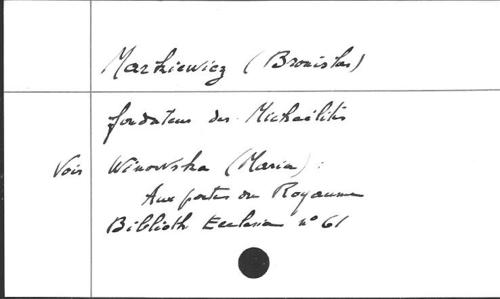 Markiewicz (Bronislas)
fondateur des Michaëlites
Voir Winowska (Maria) :
Aux portes du Royaume
Biblioth Ecclesia n° 61